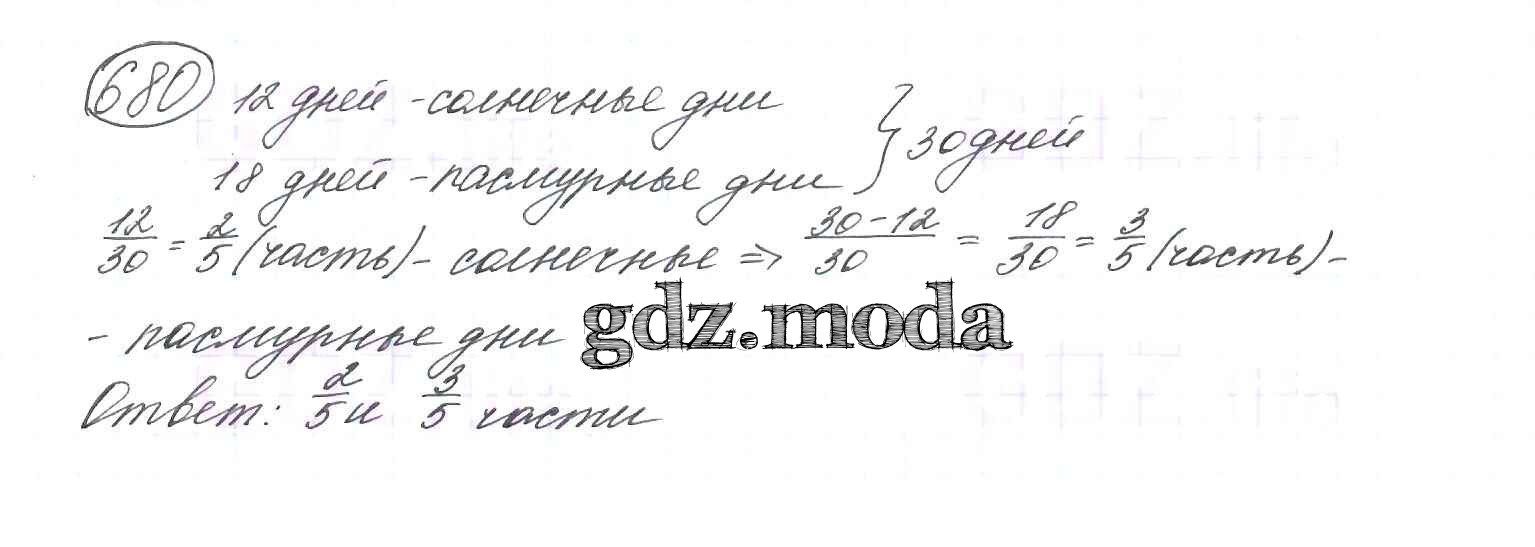 680 12 дней - солнечные дни
18 дней - пасмурные дни } 30 дней
12/30 = 2/5 (часть) - солнечные => 30-12/30 = 18/30 = 3/5 (часть) -
- пасмурные дни
gdz.moda
Ответ: 2/5 и 3/5 части